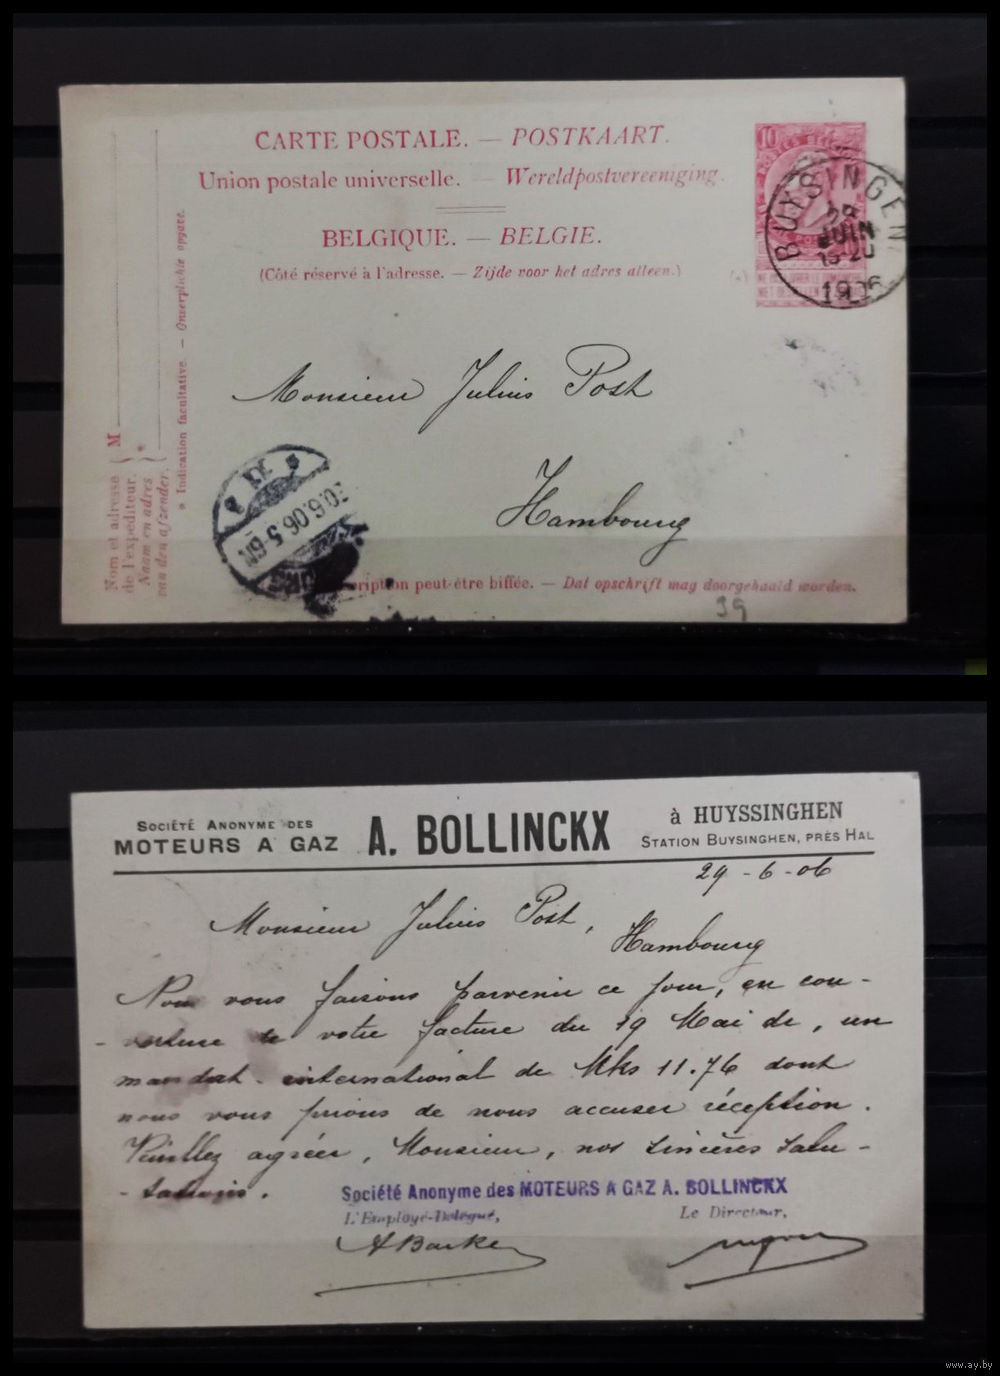 CARTE POSTALE. — POSTKAART.
Union postale universelle. — Wereldpostvereeniging.
BELGIQUE. — BELGIE.
(Côté réservé à l'adresse. — Zijde voor het adres alleen.)
10
POSTES BELG
NIET BESTELLEN
BUYSINGEN
29
JUIN
1906
M
*
Nom et adresse
de l'expéditeur.
Naam en adres
van den afzender.
* Indication facultative. — Onverplichte opgave.
Monsieur Julius Post
Hambourg
30.6.06.5-6N
cription peut-être biffée. — Dat opschrift mag doorgehaald worden.
39
SOCIÉTÉ ANONYME DES
MOTEURS A GAZ
A. BOLLINCKX
à HUYSSINGHEN
STATION BUYSINGHEN, PRÈS HAL
29-6-06
Monsieur Julius Post,
Hambourg
Nous vous faisons parvenir ce jour, en cou-
-verture de votre facture du 19 Mai dr, un
mandat international de Mks 11.76 dont
nous vous prions de nous accuser réception.
Veuillez agréer, Monsieur, nos sincères salu-
-tations.
Société Anonyme des MOTEURS A GAZ A. BOLLINCKX
L'Employé-Délégué,
Le Directeur,
www.ay.by